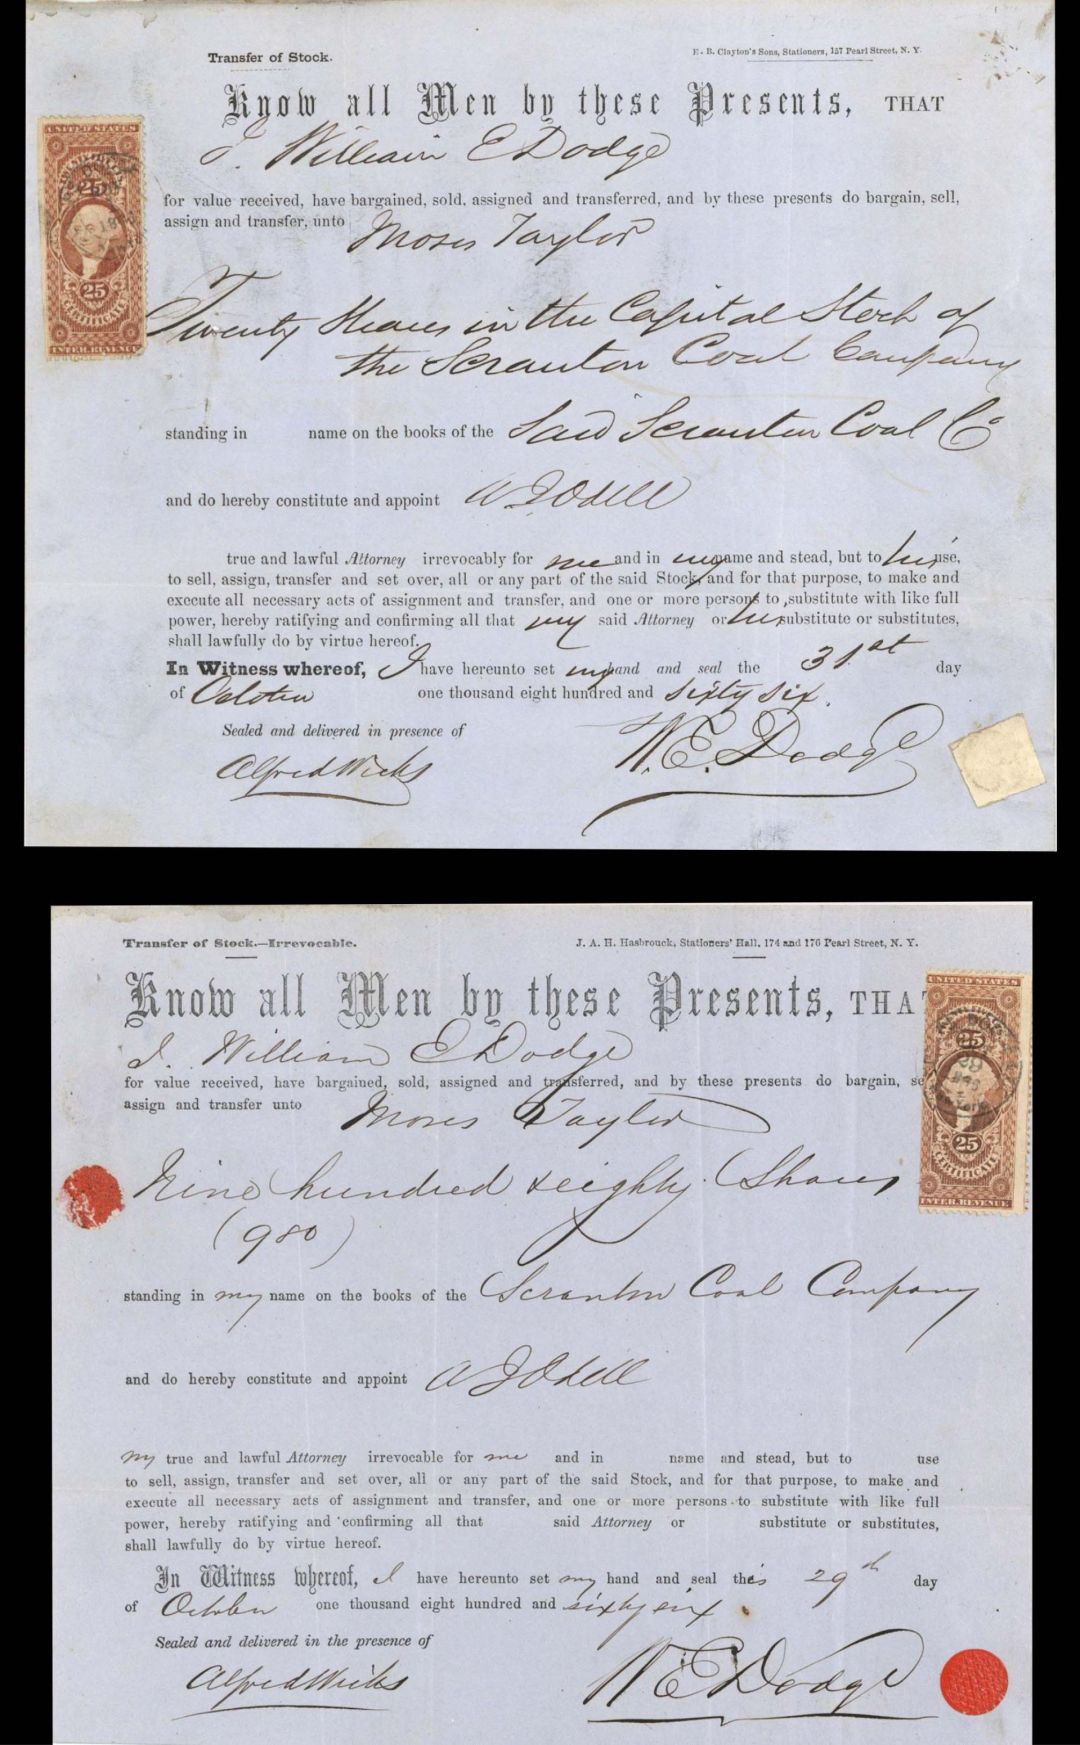 Transfer of Stock.
E. B. Clayton's Sons, Stationers, 157 Pearl Street, N. Y.
Know all Men by these Presents, THAT
I. William E Dodge
for value received, have bargained, sold, assigned and transferred, and by these presents do bargain, sell,
assign and transfer, unto Moses Taylor
Twenty Shares in the Capital Stock of
the Scranton Coal Company
standing in name on the books of the Said Scranton Coal Co
and do hereby constitute and appoint A J Odell
true and lawful Attorney irrevocably for me and in my name and stead, but to his use,
to sell, assign, transfer and set over, all or any part of the said Stock, and for that purpose, to make and
execute all necessary acts of assignment and transfer, and one or more persons to substitute with like full
power, hereby ratifying and confirming all that my said Attorney or his substitute or substitutes,
shall lawfully do by virtue hereof.
In Witness whereof, I have hereunto set my hand and seal the 31st day
of October one thousand eight hundred and sixty six.
Sealed and delivered in presence of
Alfred Wicks
W. E. Dodge
UNITED STATES
25
25
CERTIFICATE
INTER. REVENUE
Transfer of Stock.—Irrevocable.
J. A. H. Hasbrouck, Stationers' Hall, 174 and 176 Pearl Street, N. Y.
Know all Men by these Presents, THA
I. William E Dodge
for value received, have bargained, sold, assigned and transferred, and by these presents do bargain, se
assign and transfer unto Moses Taylor
Nine hundred & eighty Shares
(980)
standing in my name on the books of the Scranton Coal Company
and do hereby constitute and appoint A J Odell
my true and lawful Attorney irrevocable for me and in name and stead, but to use
to sell, assign, transfer and set over, all or any part of the said Stock, and for that purpose, to make and
execute all necessary acts of assignment and transfer, and one or more persons to substitute with like full
power, hereby ratifying and confirming all that said Attorney or substitute or substitutes,
shall lawfully do by virtue hereof.
In Witness whereof, I have hereunto set my hand and seal this 29th day
of October one thousand eight hundred and sixty six.
Sealed and delivered in the presence of
Alfred Wicks
W E Dodge
UNITED STATES
25
25
CERTIFICATE
INTER. REVENUE